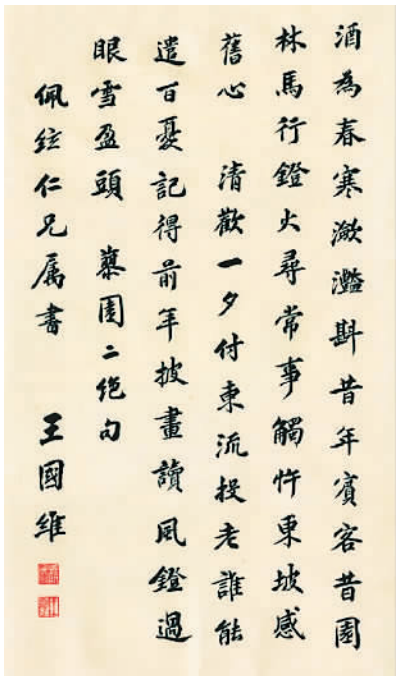 酒為春寒瀲灩斟昔年賓客昔園
林馬行鐙火尋常事觸忤東坡感
舊心 清歡一夕付東流投老誰能
遣百憂記得前年披畫讀風鐙過
眼雪盈頭 園二絕句
佩鉉仁兄属書 王國維